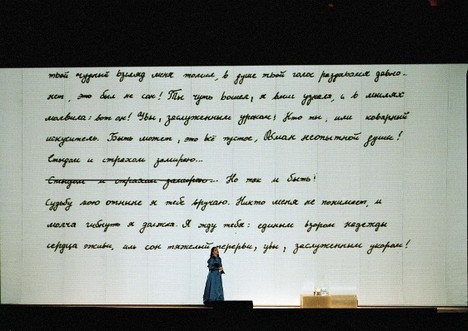 твой чудный взгляд меня томил, в душе твой голос раздавался давно..
нет, это был не сон! Ты чуть вошел, я вмиг узнала, и в мыслях
молвила: вот он! Увы, заслуженным укорам! Кто ты, или коварный
искуситель. Быть может, это всё пустое, Обман неопытной души!
Стыдом и страхом замираю...
Стыдом и страхом замираю.. Но так и быть!
Судьбу мою отныне я тебе вручаю. Никто меня не понимает, и
молча гибнуть я должна. Я жду тебя: единым взором надежды
сердца оживи, иль сон тяжелый перерви, увы, заслуженным укором!